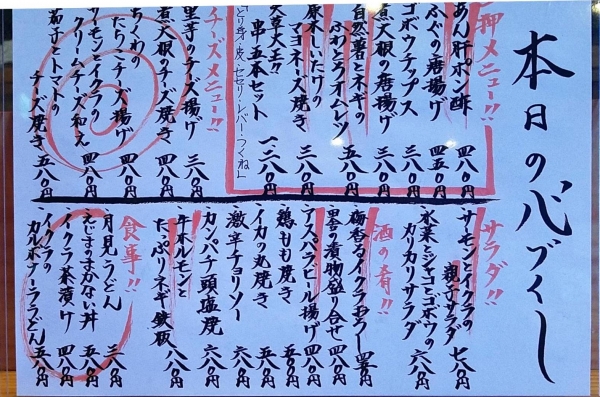 本日の心づくし
押メニュー!!
あん肝ポン酢 四八〇円
ふぐの唐揚 四五〇円
ゴボウチップス 三八〇円
煮大根の唐揚 三八〇円
自然薯とネギの
ふわとろオムレツ 五八〇円
原木しいたけの
マヨネーズ焼き 三八〇円
天草大王!!
串五本セット 一三八〇円
チーズメニュー!!
里芋のチーズ揚げ 三八〇円
煮大根のチーズ焼き 四八〇円
ちくわの
たらこチーズ揚げ 四八〇円
サーモンとイクラの
クリームチーズ和え 四八〇円
茄子とトマトの
チーズ焼き 五八〇円
サラダ!!
サーモンとイクラの
親子サラダ 七八〇円
水菜とジャコとゴボウの
カリカリサラダ 六八〇円
酒の肴!!
梅香るイクラおろし 四五〇円
里の漬物盛り合せ 三八〇円
アスパラビール揚げ 四八〇円
鶏もも焼き 五五〇円
イカの丸焼き 五八〇円
激辛チョリソー 六八〇円
カンパチ頭塩焼 六八〇円
牛ホルモンと
たっぷりネギ鉄板 八八〇円
食事!!
月見うどん 三八〇円
えじまのまかない丼 五八〇円
イクラ茶漬け 四八〇円
イクラの
カルボナーラうどん 五八〇円